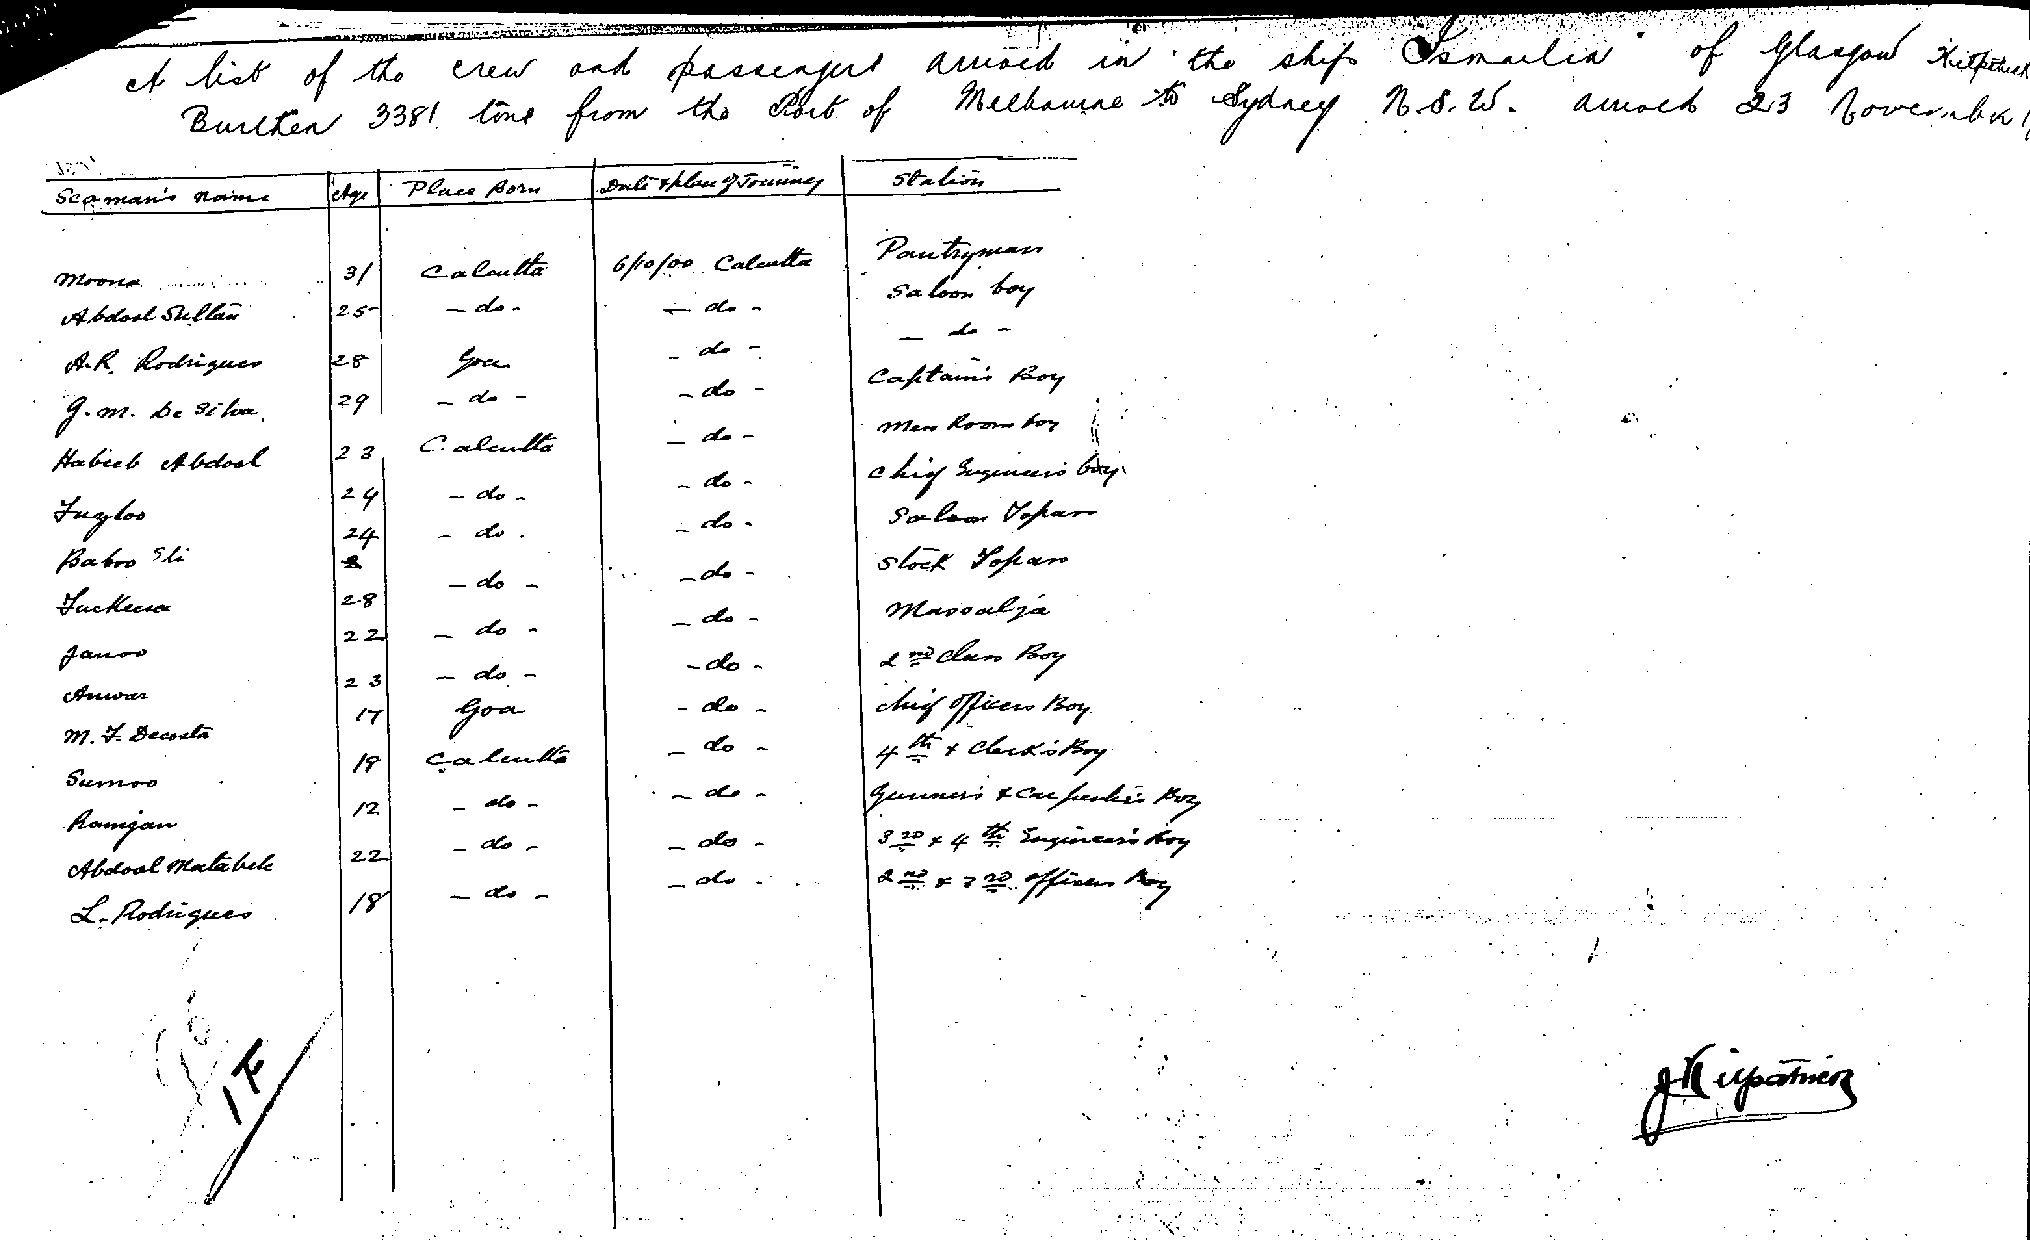 A list of the crew and passengers arrived in the ship "Ismailia" of Glasgow
Burthen 3381 tons from the Port of Melbourne to Sydney N.S.W. arrived 23 November
Seaman's name Age Place Born Date & place of Joining Station
Moona 31 Calcutta 6/10/00 Calcutta Pantryman
Abdool Sultan 25 - do - - do - Saloon boy
A.R. Rodrigues 28 Goa - do - - do -
G. M. De Silva 29 - do - - do - Captain's Boy
Habeeb Abdool 23 Calcutta - do - Mess Room boy
Fuzloo 24 - do - - do - Chief Engineer's boy
Baboo 24 - do - - do - Saloon Topas
28 - do - - do - Stock Topas
Janoo 22 - do - - do - Massalja
Anwar 23 - do - - do - 2nd Class Boy
M. F. Decosta 17 Goa - do - Chief Officers Boy
Sumoo 19 Calcutta - do - 4th & Clerk's Boy
Ramjan 12 - do - - do - Gunner's & Carpenter's Boy
Abdool 22 - do - - do - 3rd & 4th Engineer's Boy
L. Rodrigues 18 - do - - do - 2nd & 3rd officers Boy
17
J Kilpatrick